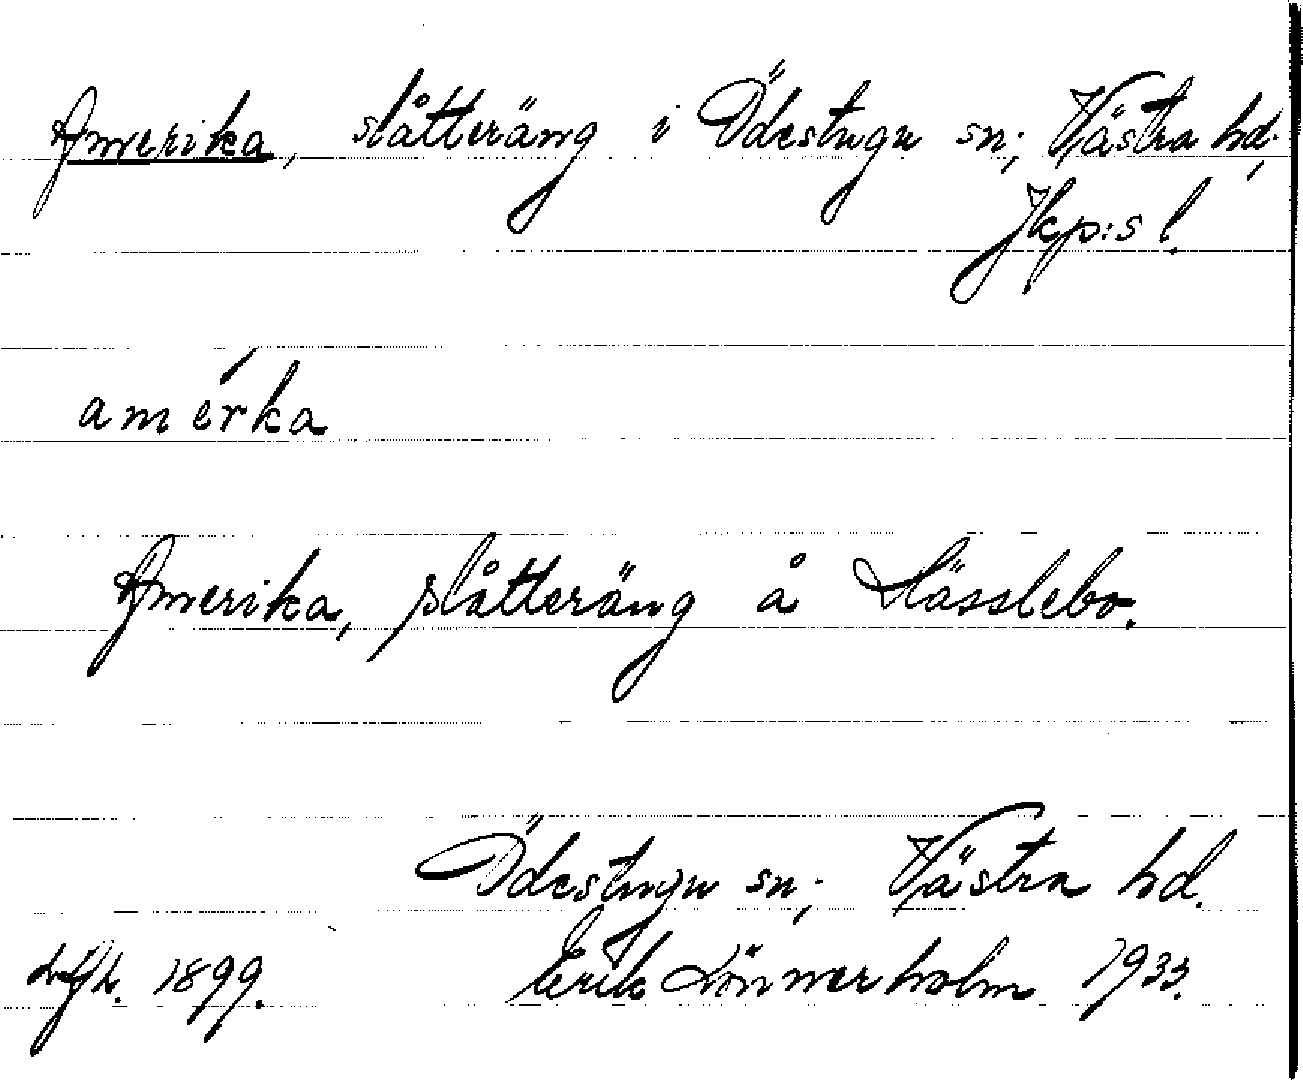 Amerika, slåtteräng i Ödestugu sn; Västra hd;
Jkp:s l.
amérka
Amerika, slåtteräng å Hässlebo.
Ödestugu sn; Västra hd.
1899. Erik Lönnerholm 1933.